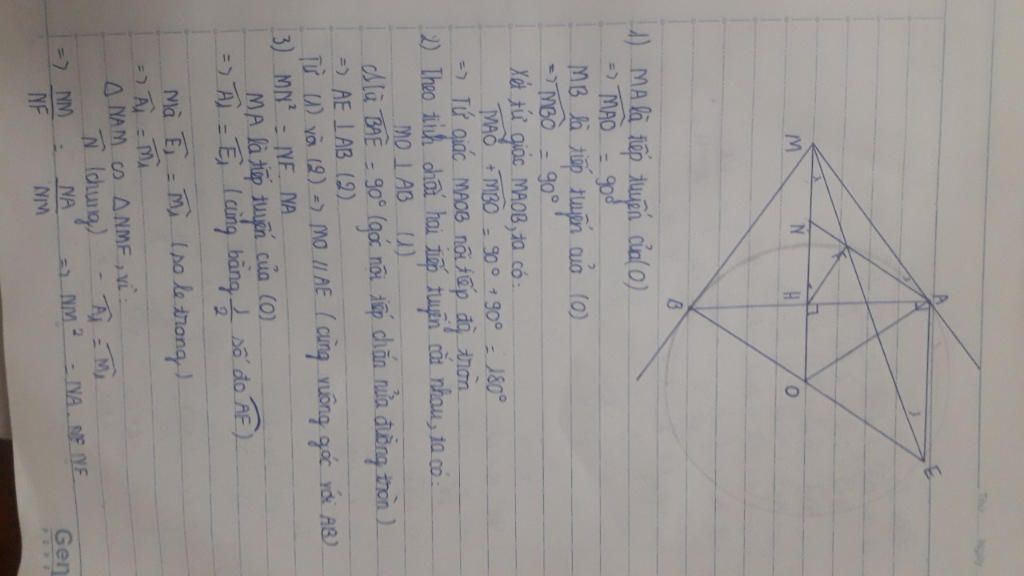 Thứ Ngày
M
N
H
O
A
B
E
F
1
1
1) MA là tiếp tuyến của (O)
=> MAO = 90°
MB là tiếp tuyến của (O)
=> MBO = 90°
Xét tứ giác MAOB, ta có:
MAO + MBO = 90° + 90° = 180°
=> Tứ giác MAOB nội tiếp đg tròn
2) Theo tính chất hai tiếp tuyến cắt nhau, ta có:
MO ⊥ AB (1)
Mà BAE = 90° (góc nội tiếp chắn nửa đường tròn)
=> AE ⊥ AB (2)
Từ (1) và (2) => MO // AE (cùng vuông góc với AB)
3) MN² = NF. NA
MA là tiếp tuyến của (O)
=> A₁ = E₁ (cùng bằng 1/2 số đo AE)
Mà E₁ = M₁ (so le trong)
=> A₁ = M₁
Δ NAM có Δ NMF, vì:
N (chung) - A₁ = M₁
=> NM/NF = NA/NM => NM² = NA. NF
Gen